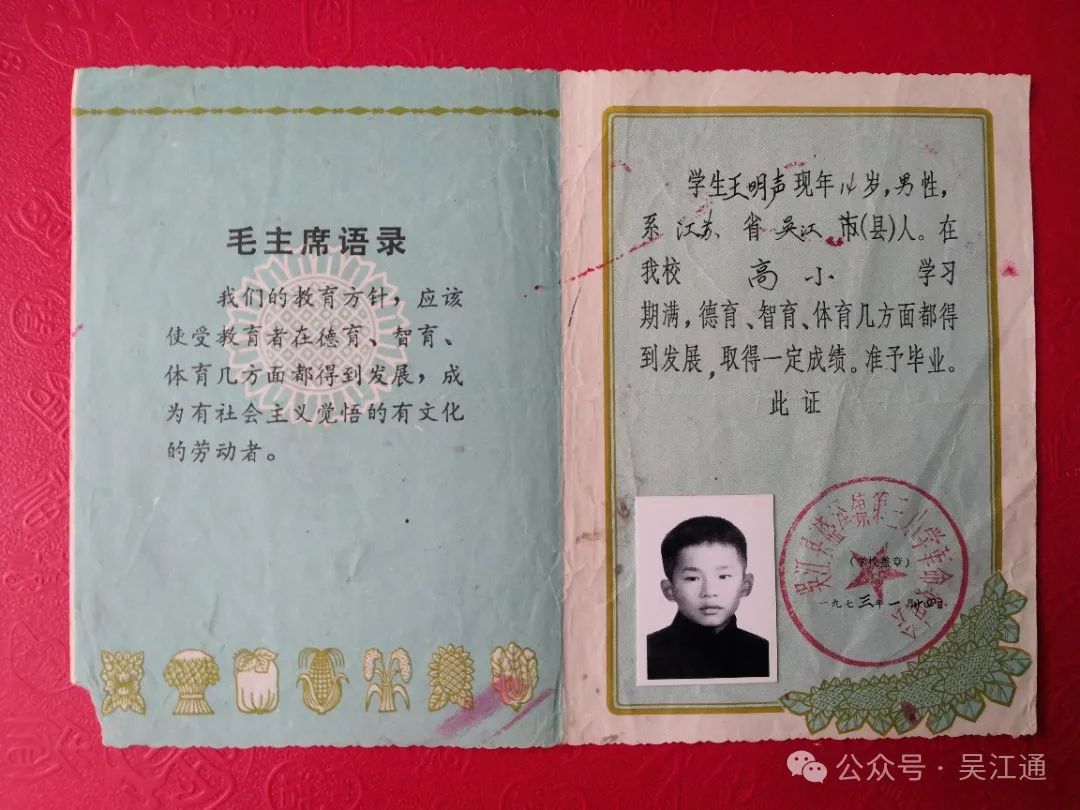 毛主席语录
我们的教育方针，应该
使受教育者在德育、智育、
体育几方面都得到发展，成
为有社会主义觉悟的有文化
的劳动者。
学生王明声现年14岁，男性，
系江苏省吴江市(县)人。在
我校高小学习
期满，德育、智育、体育几方面都得
到发展，取得一定成绩。准予毕业。
此证
吴江县盛泽镇第三小学革命
(学校盖章)
一九七三年一月
公众号·吴江通